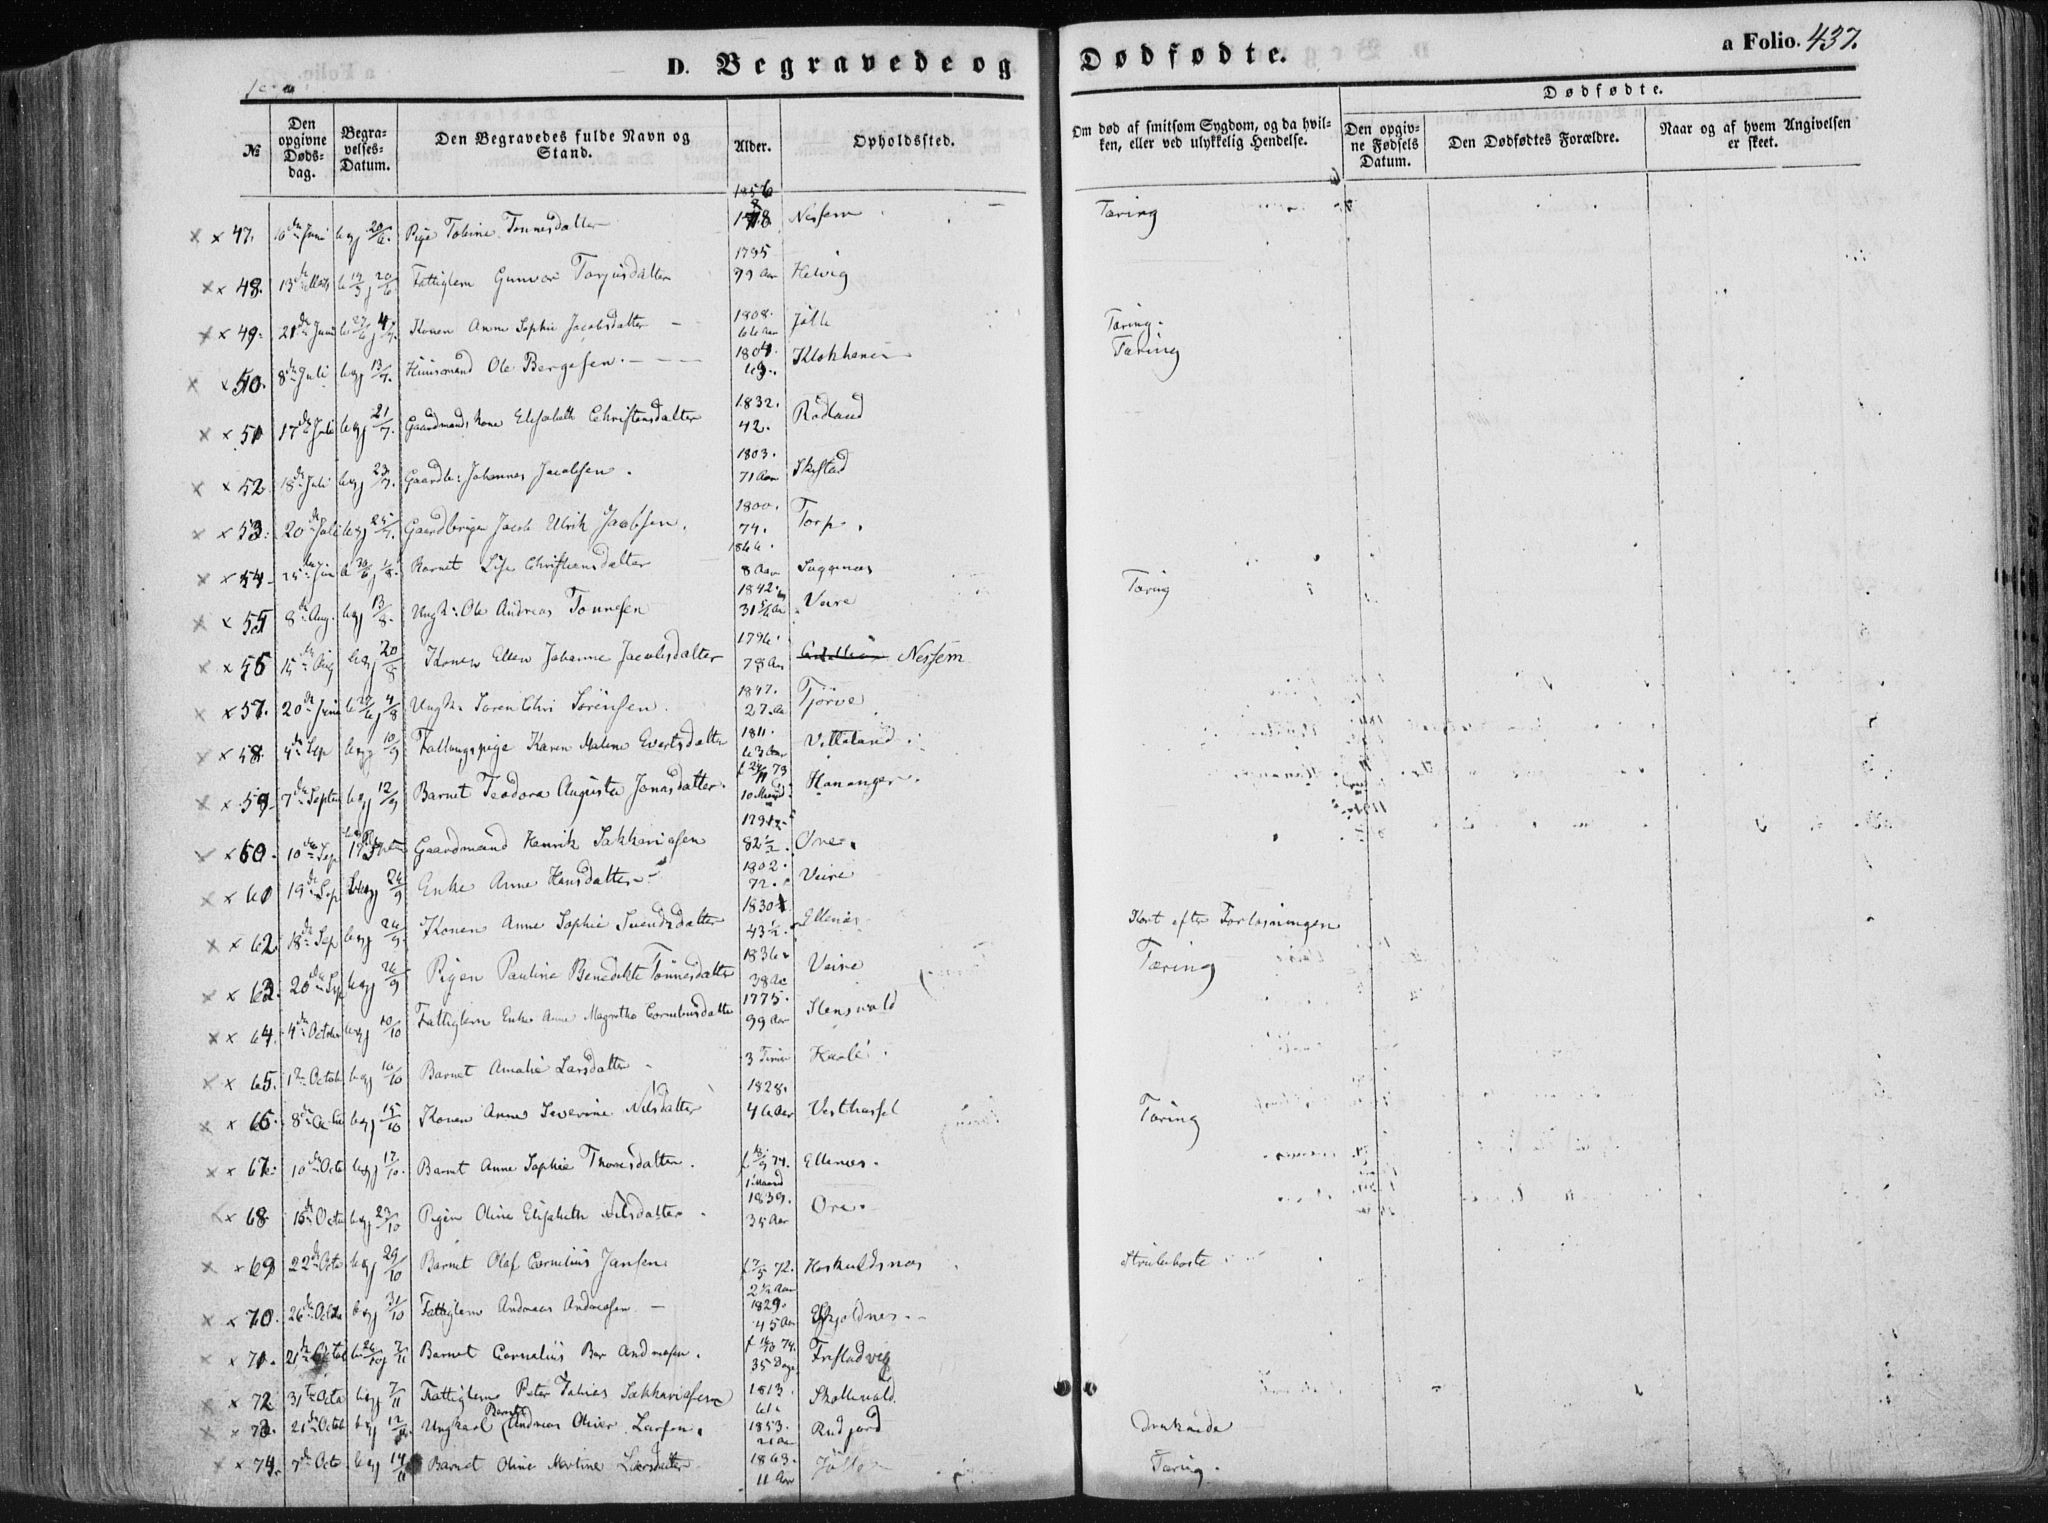 D. Begravede og Dødfødte.
a Folio. 437.
№
Den opgivne Døds-dag.
Begra-velses-Datum.
Den Begravedes fulde Navn og Stand.
Alder.
Opholdssted.
Om død af smitsom Sygdom, og da hvil-ken, eller ved ulykkelig Hendelse.
Dødfødte.
Den opgiv-ne Fødsels Datum.
Den Dødfødtes Forældre.
Naar og af hvem Angivelsen er skeet.
47. 6 Juni beg 20/6. Pige Tobine Tønnesdatter 1856 18 Nessem Tæring
48. 13 b 19/3 j 20/6 Fattiglem Gunvor Torjusdatter 1795 Helvig
49. 21 Juni b 27/6 j 4/7. Konen Anne Sophie Jacobsdatter 1808. 66 Aar Jølle Tæring.
50. 8 Juli beg 13/7. Huusmand Ole Bergesen. 1804. Tæring
51 17 Juli beg 21/7. Gaardmands Kone Elisabeth Christensdatter 1832. 42. Rødland
52 18 Juli beg 23/7. Gaardb: Johannes Jacobsen. 1803. 71 Aar Skistad
53. 20 Juli beg 25/7. Jacob Ulrik Jacobsen. 1800. 74. Torp.
54 25 Juni Barnet Lise Christensdatter 1866. 8 Aar Tæring
55 8 Aug. beg 13/8. Ungk: Ole Andreas Tønnesen 1842. Veire
56 15 Aug beg 20/8 Konen Ellen Johanne Jacobsdatter 1796. 78 Aar Nessem
57. 20 Juni b 27/6 j 4/8 Ungk. Søren Chri Sørensen. 1847. 27. Aar Tjørve
58. 4 Sep beg 10/9 Karen Malene Evertsdatter 1811. 63 Aar Vitteland
59 7 Septem beg 12/9 Barnet Teodora Augusta Jonasdatter. f 24/11 73 10 Maaned Hananger.
60. 10 Sep Gaardmand Henrik Sakkariasen 82 1/2 Ore.
61 19 Sep beg 26/9 Enke Anne Hansdatter 1802. 72. Veire
62 18 Sep beg 24/9 Konen Anne Sophie Svendsdatter 1830 43 1/2. Ellenæs Kort efter Forløsningen
63. 20 Sep beg 26/9 Pigen Pauline Benedikte Tønnesdatter 1836 38 Aar Veire Tæring
64. 4 October beg 10/10 Fattiglem Enke Anne Magrethe Corneliusdatter 1775. 99 Aar Stensvold
65. Octob beg 10/10 Barnet Amalie Larsdatter 3 Timer
66. 8 Octo beg 15/10 Konen Anne Severine Nilsdatter 1828. 46 Aar Vesthassel Tæring
67. 10 Octo beg 17/10. Barnet Anne Sophie Thoresdatter. 1 Maaned Ellenæs.
68 15 Octo beg 23/10 Pigen Oline Elisabeth Nilsdatter 1839. 35 Aar Ore.
69 22 Octo beg 29/10 Barnet Olaf Cornelius Jansen f 7/5 72. 2 1/2 Aar Huskuldsnes Strubehoste
70. 26 Octo beg 31/10 Fattiglem Andreas Andreasen 1829. 45 Aar
71. 21 Octob Barnet Cornelius Andreasen. 35 Dage
72 31 Octo beg 7/11 Fattiglem Peter Tobias Sakkariasen 1813. 61. Skollevold.
73. 21 Octob beg 12/11 Ungkarl Andreas Oliver Larsen. 1853. 21 Aar Rudjord Druknede
74. 7 Octo beg 14/11 Barnet Oline Martine Larsdatter 1863. 11 Aar Jølle Tæring.